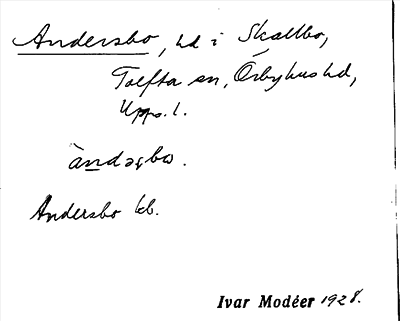 Andersbo, hd i Skallbo,
Tolfta sn, Örbyhus hd,
Upps. l.
àndəʂbω.
Andersbo kb.
Ivar Modéer 1928.